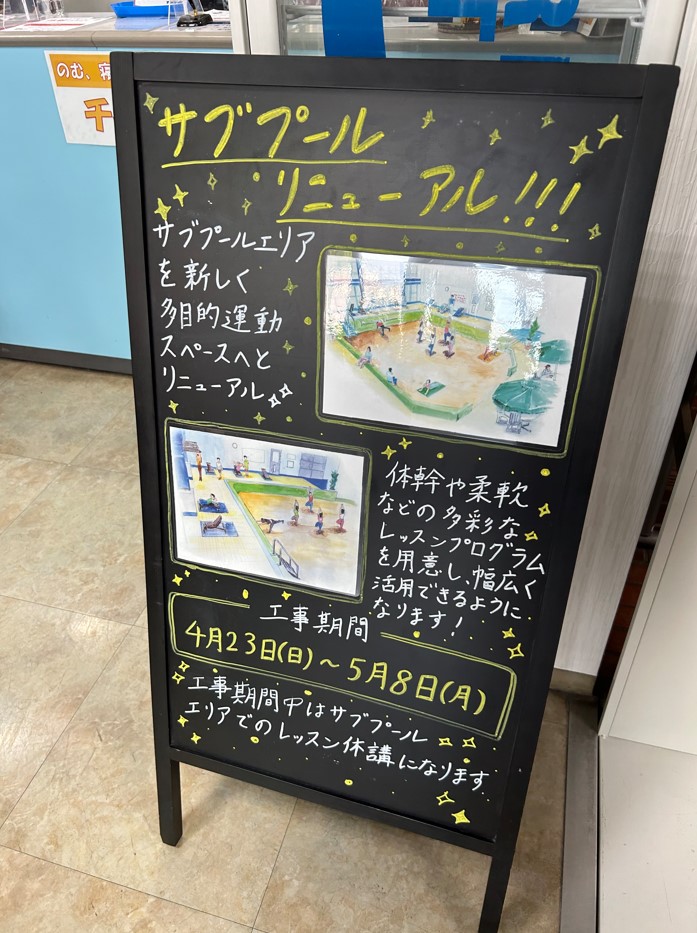 のむ、
千
サブプール
リニューアル!!!
サブプールエリア
を新しく
多目的運動
スペースへと
リニューアル
体幹や柔軟
などの多彩な
レッスンプログラム
を用意し、幅広く
活用できるように
なります!
工事期間
4月23日(日)~5月8日(月)
工事期間中はサブプール
エリアでのレッスン休講になります